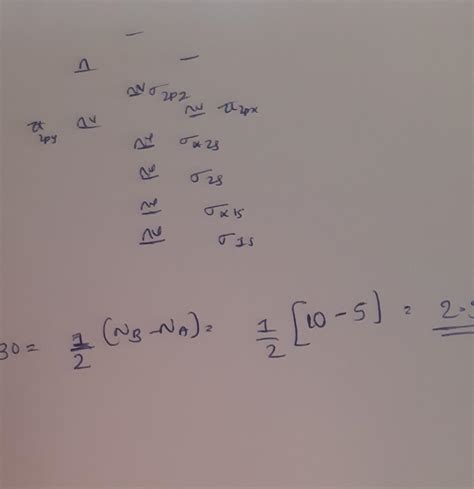 σ2pz
π2py π2px
σ*2s
σ2s
σ*1s
σ1s
BO = 1/2 (NB - NA) = 1/2 [10 - 5] = 2.5